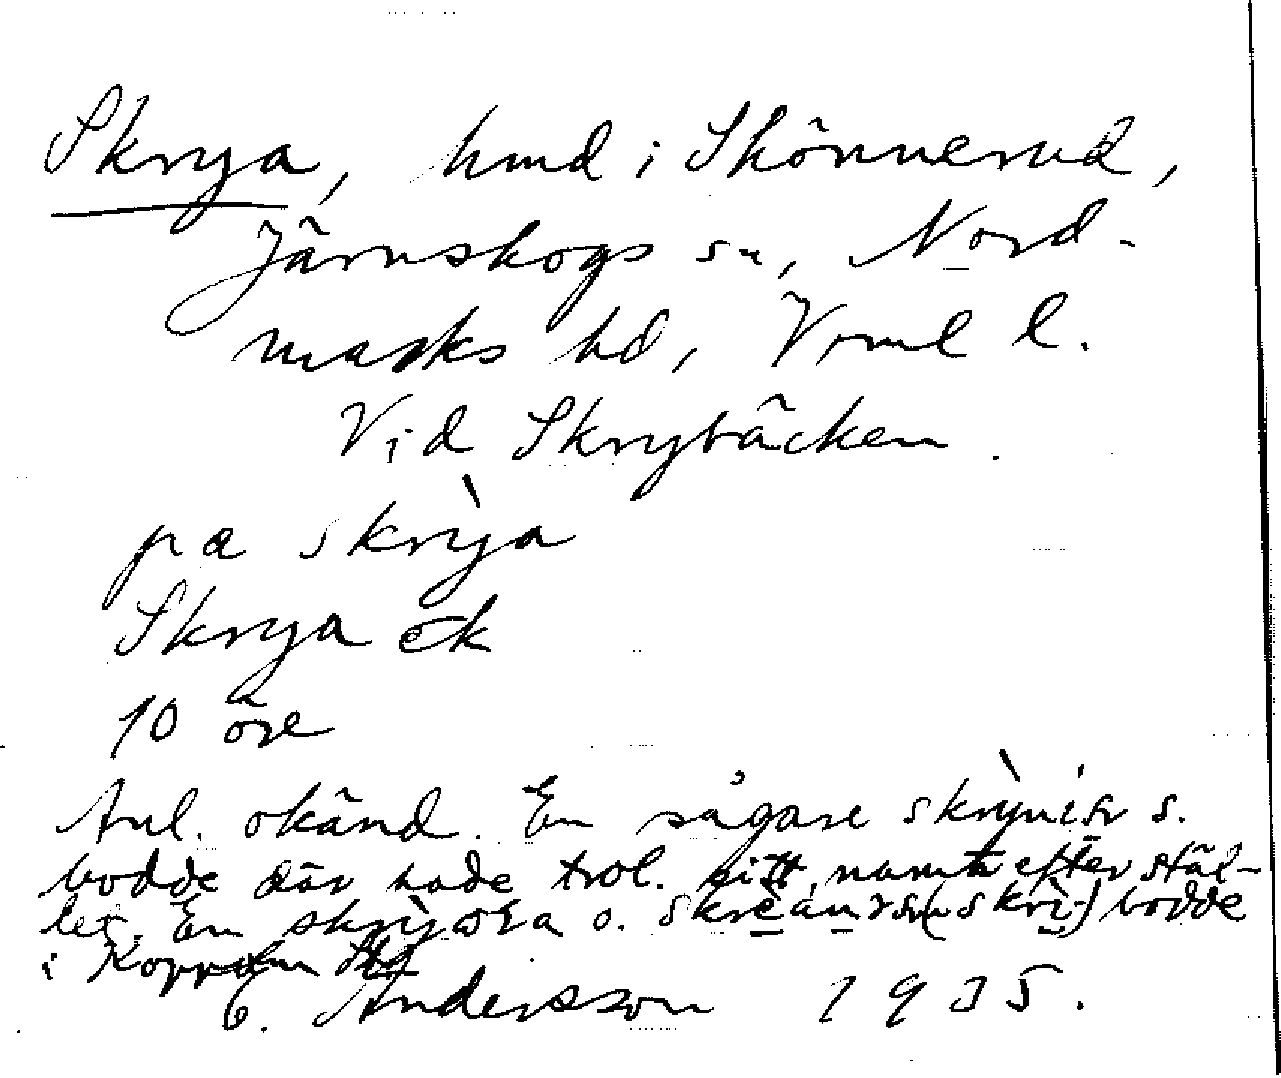 Skrya, hmd i Skönnerud,
Järnskogs sn, Nord-
marks hd, Vrml l.
Vid Skrybäcken.
pa skrỳa
Skrya ek
10 öre
Anl. okänd. En sågare s.
bodde där hade trol. sitt namn efter stäl-
let. En o. bodde
i
G. Andersson 1935.